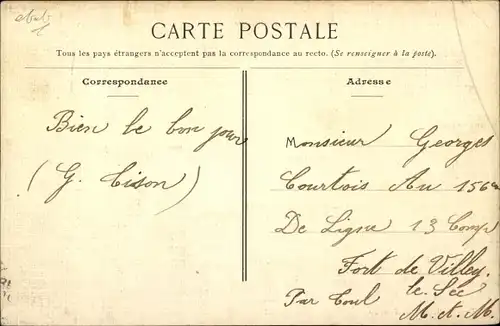 CARTE POSTALE
Tous les pays étrangers n'acceptent pas la correspondance au recto. (Se renseigner à la poste).
Correspondance
Adresse
Bien le bon jour
(G. Cison)
Monsieur Georges
Courtois Au 156e
De Ligne 13 Comp
Fort de Villey.
le Sec
Par Toul
M. et. M.